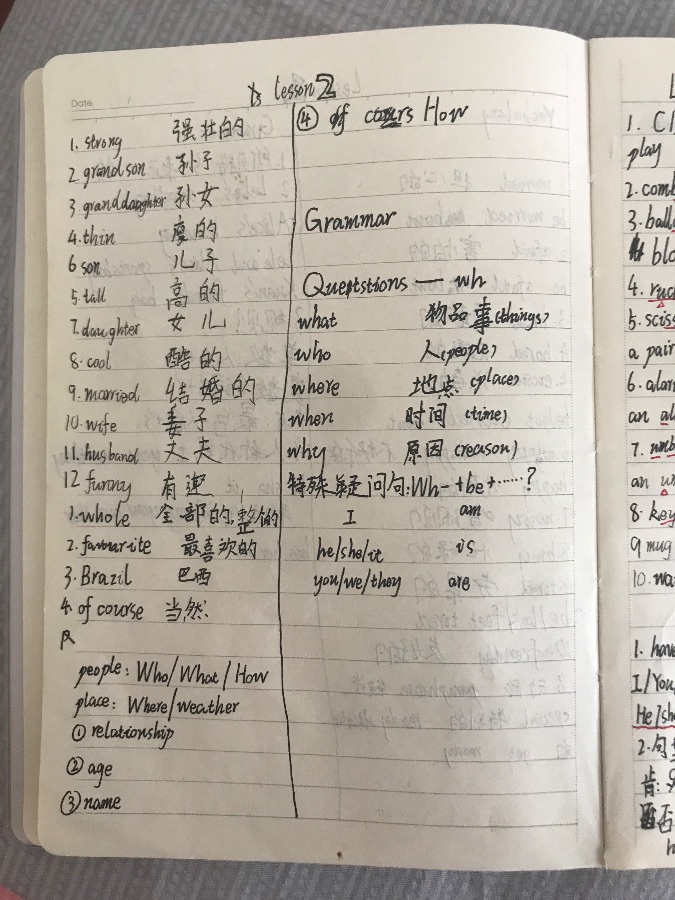 Date
Lesson 2
1. strong 强壮的
2. grandson 孙子
3. granddaughter 孙女
4. thin 瘦的
6 son 儿子
5. tall 高的
7. daughter 女儿
8. cool 酷的
9. married 结婚的
10. wife 妻子
11. husband 丈夫
12 funny 有趣
1. whole 全部的,整的
2. favourite 最喜欢的
3. Brazil 巴西
4. of course 当然
people: Who/What/How
place: Where/weather
① relationship
② age
③ name
④ How
Grammar
Queptstions — wh
what 物品事(things)
who 人(people)
where 地点 (place)
when 时间 (time)
why 原因 (reason)
特殊疑问句: Wh- + be + ……?
I am
he/she/it is
you/we/they are
1. Cl
play
2. comb
3. ball
blo
4. ruc
5. sciss
a pair
6. alar
an al
7.
an
8. key
9 mug
10. wa
1. have
I/You
He/sh
2. 句
肯:
否